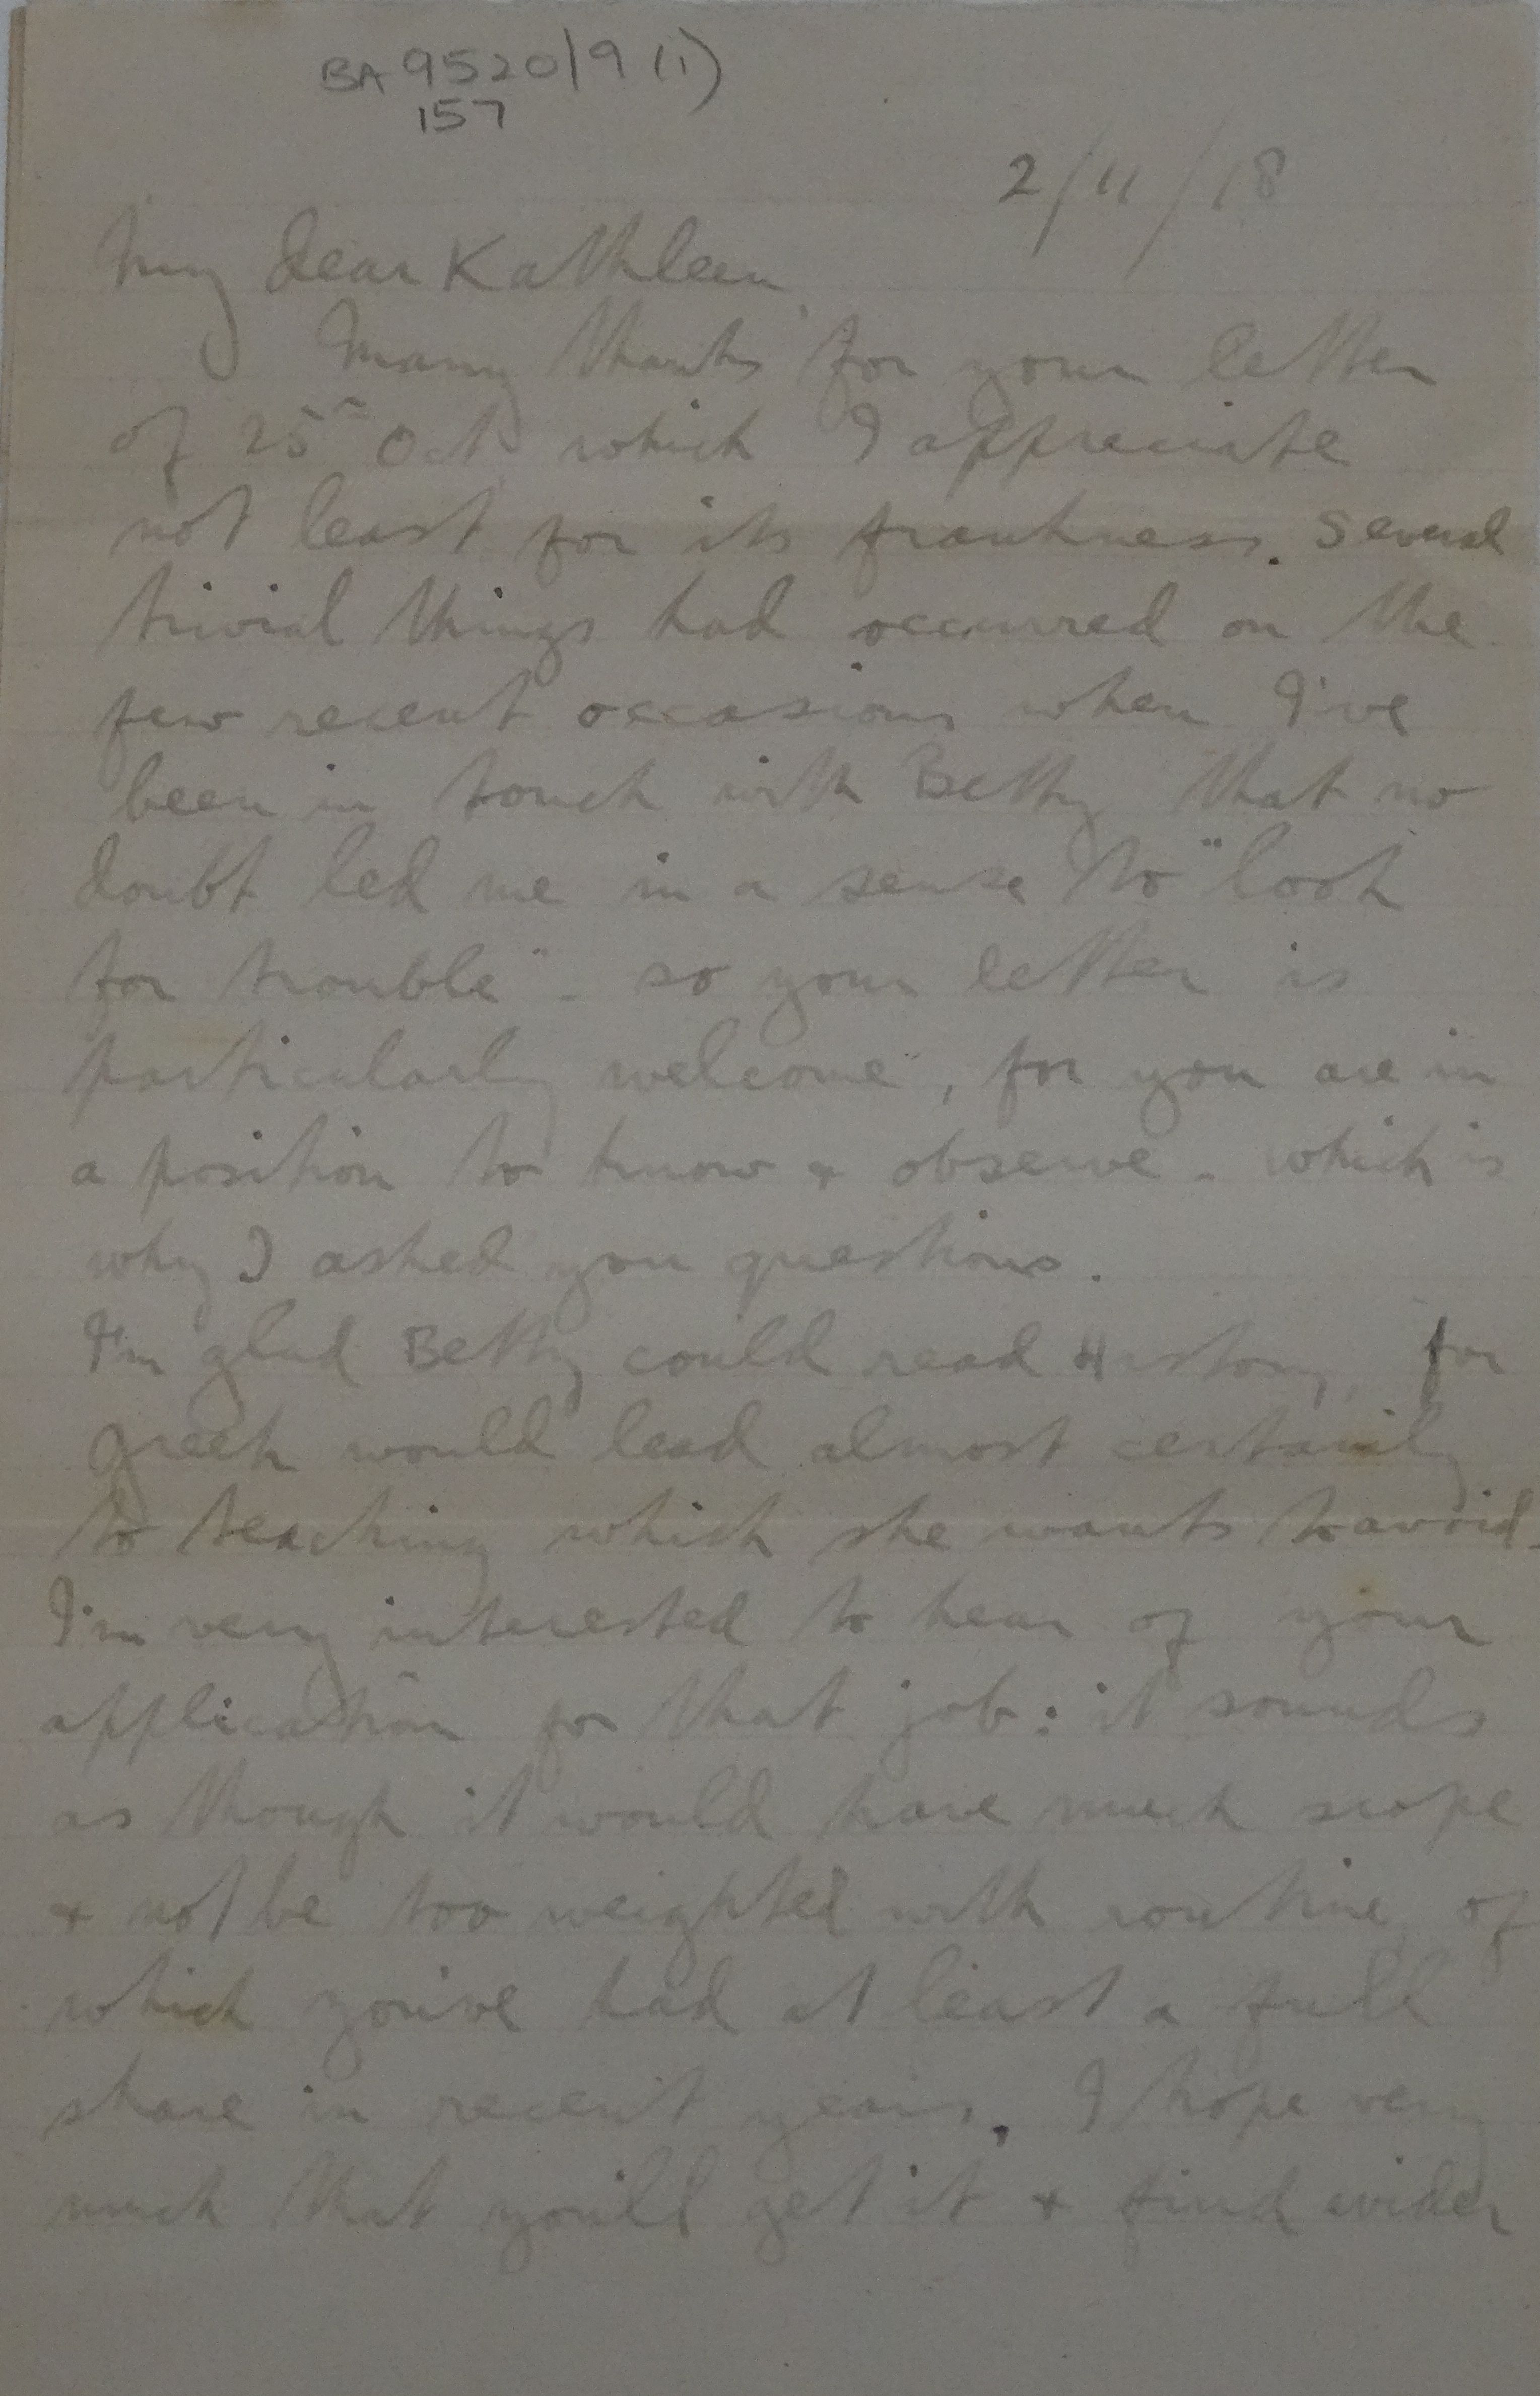 BA 9520/9 (1)
157
2/11/18
My dear Kathleen,
Many thanks for your letter
of 25th Oct which I appreciate
not least for its frankness. Several
trivial things had occurred on the
few recent occasions when I've
been in touch with Betty that no
doubt led me in a sense to "look
for trouble" - so your letter is
particularly welcome, for you are in
a position to know & observe - which is
why I asked you questions.
I'm glad Betty could read History, for
Greek would lead almost certainly
to teaching which she wants to avoid.
I'm very interested to hear of your
application for that job: it sounds
as though it would have much scope
& not be too weighted with routine, of
which you've had at least a full
share in recent years. I hope very
much that you'll get it & find wider